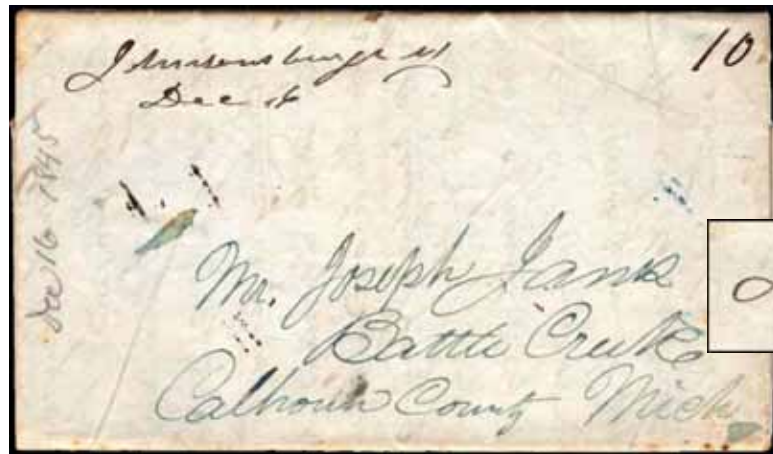 Johnsonsburgh NJ
Dec 16
10
Dec 16 1845
Mr. Joseph
Battle Creek
Calhoun County Mich